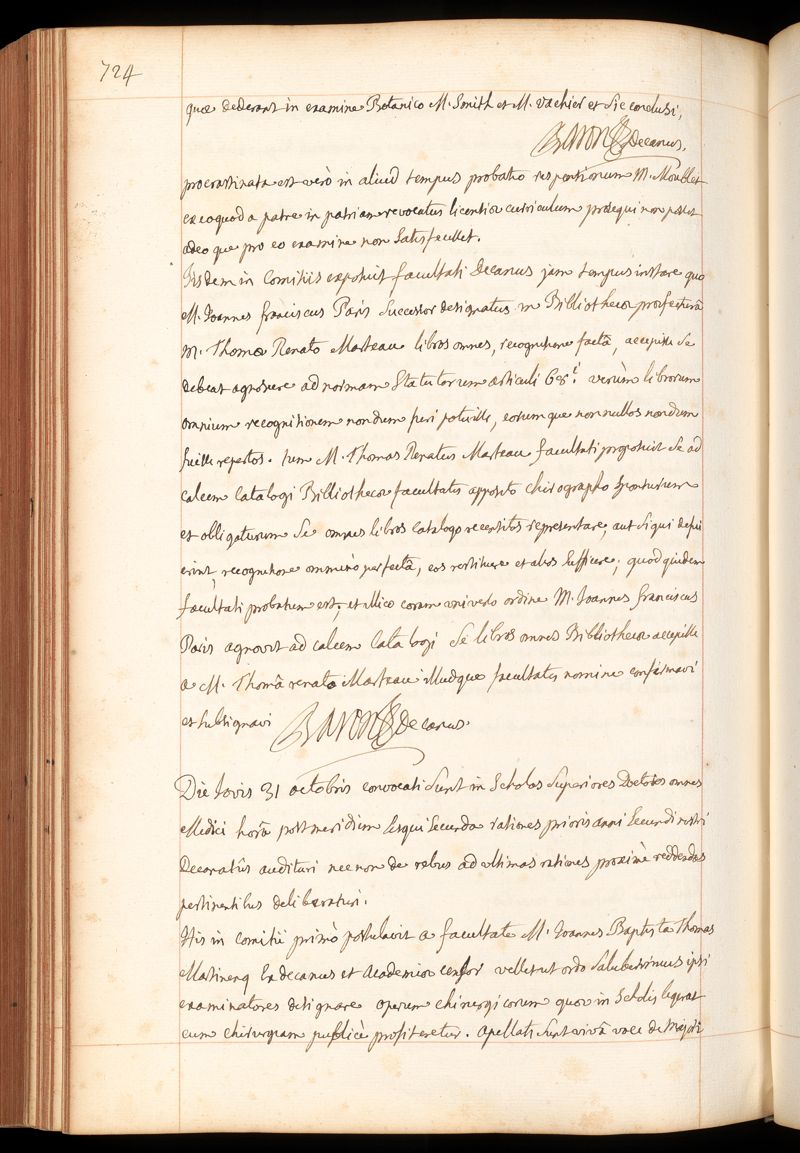 724
quæ dederant in examine Botanico M. Smith et M. Vachier et sic conclusi,
BARON decanus.
procrastinata est verò in aliud tempus probatio responsionum M. Moublet
ex eo quod a patre in patriam revocatus licentiæ curriculum prosequi non posset
adeo que pro eo examine non satisfecisset.
Iisdem in Comitiis exposuit facultati Decanus jam tempus instare quo
M. Joannes franciscus Paris successor designatus in Bibliothecæ præfecturâ
M. Thomæ Renato Marteau libros omnes, recognitione factâ, accepisse se
debeat agnoscere ad normam Statutorum articuli 68.i verùm librorum
omnium recognitionem nondum fieri potuisse, eorum que nonnullos nondum
fuisse repertos. tum M. Thomas Renatus Marteau facultati proposuit se ad
calcem Catalogi Bibliothecæ facultatis apposito chirographo sponsurum
et obligaturum se omnes libros catalogo recensitos repræsentare, aut si qui defu
erint, recognitione omninò perfectâ, eos restituere et alios sufficere; quod quidem
facultati probatum est; et illico coram universo ordine M. Joannes franciscus
Paris agnovit ad calcem Catalogi se libros omnes Bibliothecæ accepisse
a M. Thomâ renato Marteau illudque facultatis nomine confirmavi
et subsignavi BARON decanus.
Die Jovis 31 octobris convocati sunt in Scholas Superiores Doctores omnes
Medici horâ postmeridiem sesqui secunda rationes prioris anni secundi nostri
Decanatûs audituri nec non de rebus ad ultimas rationes proximè reddendas
pertinentibus deliberaturi.
His in comitii primò postulavit a facultate M. Joannes Baptista Thomas
Martinenq Exdecanus et Academiæ censor vellet ut ordo Saluberrimus ipsi
examinatores designare operum chirurgicorum quæ in Scholis legerat
cum chirurgiam publicè profiteretur. Apellati sunt vivâ voce de Majori